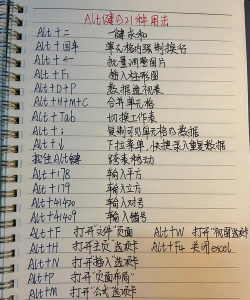 Alt键的21种用法
Alt + = 一键求和
Alt + 回车 单元格内强制换行
Alt + ← 批量调整图片
Alt + F1 插入柱形图
Alt+D+P 数据透视表
Alt+H+M+C 合并单元格
Alt + Tab 切换工作表
Alt + ; 复制可见单元格的数据
Alt + ↓ 下拉菜单,快捷录入重复数据
按住Alt键 跨表移动
Alt+178 输入平方
Alt+179 输入立方
Alt+41420 输入对号
Alt+41409 输入错号
Alt+F 打开"文件"页面 Alt+W 打开"视图"选项卡
Alt+H 打开"主页"选项卡 Alt+F4 关闭excel
Alt+N 打开"插入"选项卡
Alt+P 打开"页面布局"
Alt+M 打开"公式"选项卡